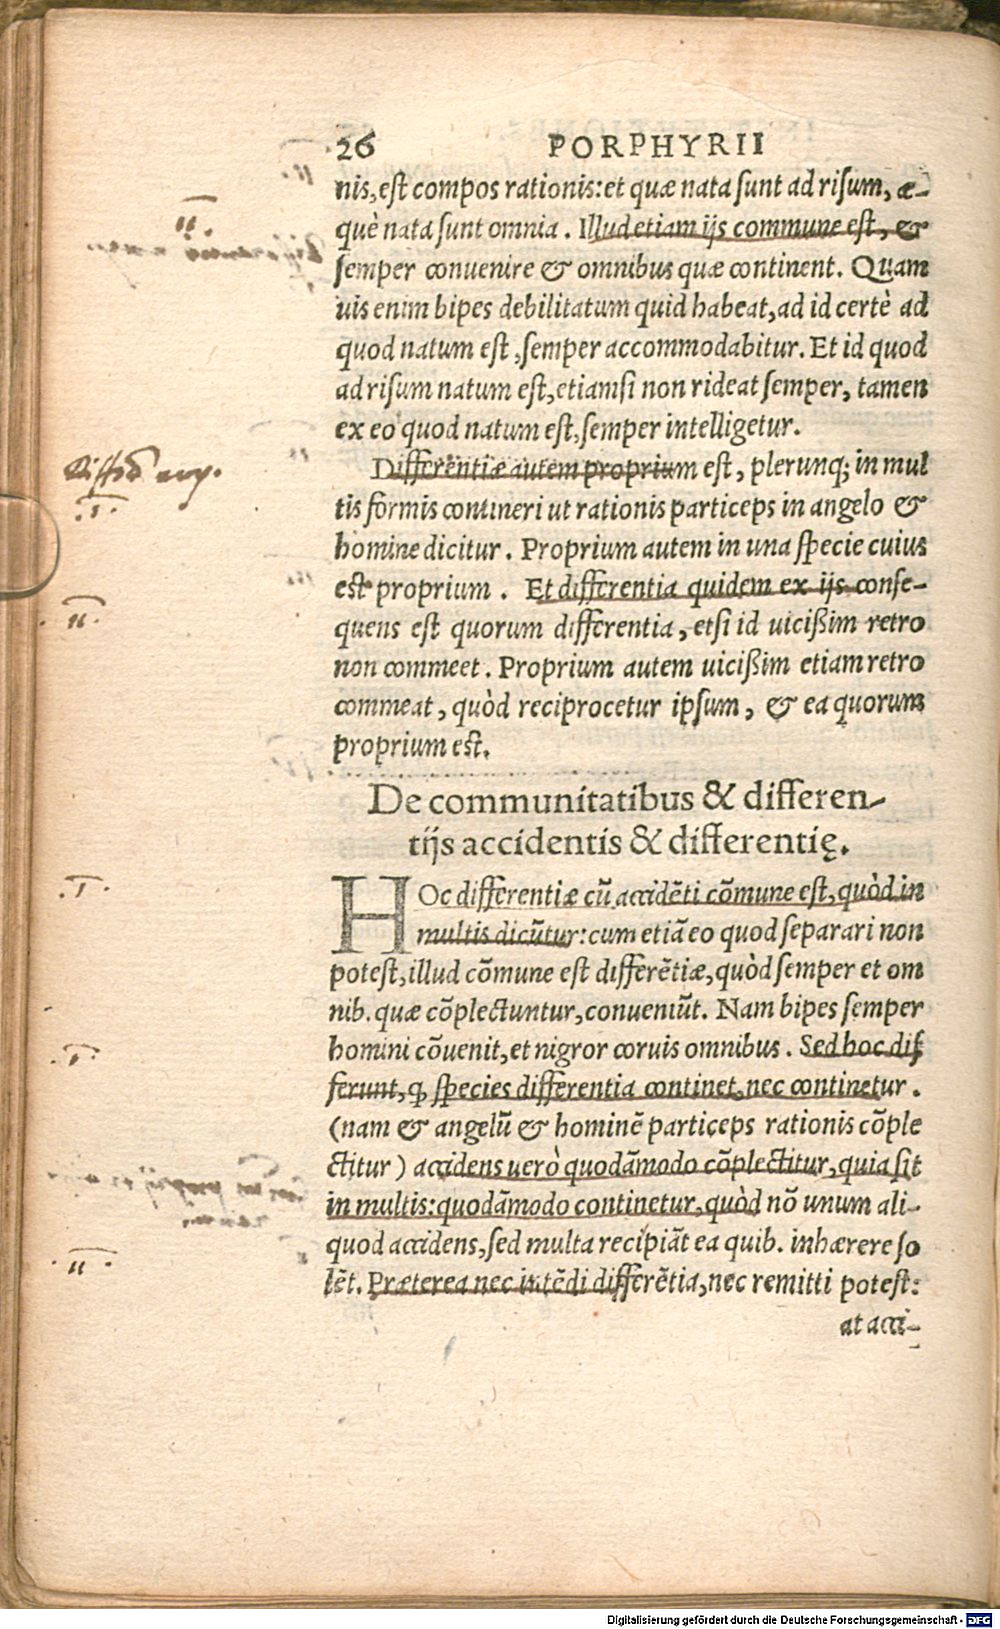 26 PORPHYRII
nis, est compos rationis: et quæ nata sunt ad risum, æ-
què nata sunt omnia. Illud etiam ijs commune est, &
semper conuenire & omnibus quæ continent. Quam
uis enim bipes debilitatum quid habeat, ad id certè ad
quod natum est, semper accommodabitur. Et id quod
ad risum natum est, etiamsi non rideat semper, tamen
ex eo quod natum est, semper intelligetur.
Differentiæ autem proprium est, plerunq; in mul
tis formis contineri ut rationis particeps in angelo &
homine dicitur. Proprium autem in una specie cuius
est proprium. Et differentia quidem ex ijs conse-
quens est quorum differentia, etsi id uicißim retro
non commeet. Proprium autem uicißim etiam retro
commeat, quòd reciprocetur ipsum, & ea quorum
proprium est.
De communitatibus & differen-
tijs accidentis & differentię.
HOc differentiæ cū accidēti cōmune est, quòd in
multis dicūtur: cum etiā eo quod separari non
potest, illud cōmune est differētiæ, quòd semper et om
nib. quæ cōplectuntur, conueniūt. Nam bipes semper
homini cōuenit, et nigror coruis omnibus. Sed hoc dif
ferunt, ꝙ species differentia continet, nec continetur.
(nam & angelū & hominē particeps rationis cōple
ctitur) accidens uerò quodāmodo cōplectitur, quia sit
in multis: quodāmodo continetur, quòd nō unum ali-
quod accidens, sed multa recipiāt ea quib. inhærere so
lēt. Præterea nec intēdi differētia, nec remitti potest:
at acci-
.III.
.I.
.II.
.I.
.I.
.II.
Digitalisierung gefördert durch die Deutsche Forschungsgemeinschaft - DFG